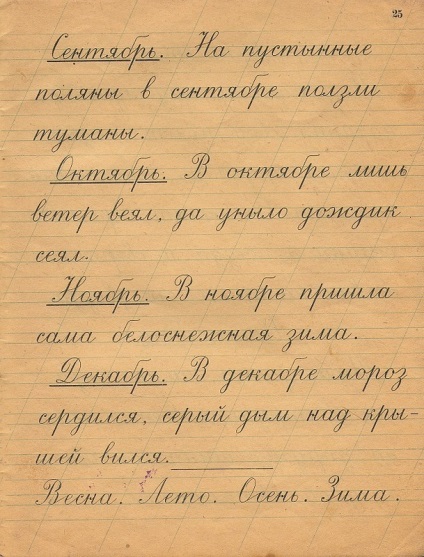 25
Сентябрь. На пустынные
поляны в сентябре ползли
туманы.
Октябрь. В октябре лишь
ветер веял, да уныло дождик
сеял.
Ноябрь. В ноябре пришла
сама белоснежная зима.
Декабрь. В декабре мороз
сердился, серый дым над кры-
шей вился.
Весна. Лето. Осень. Зима.